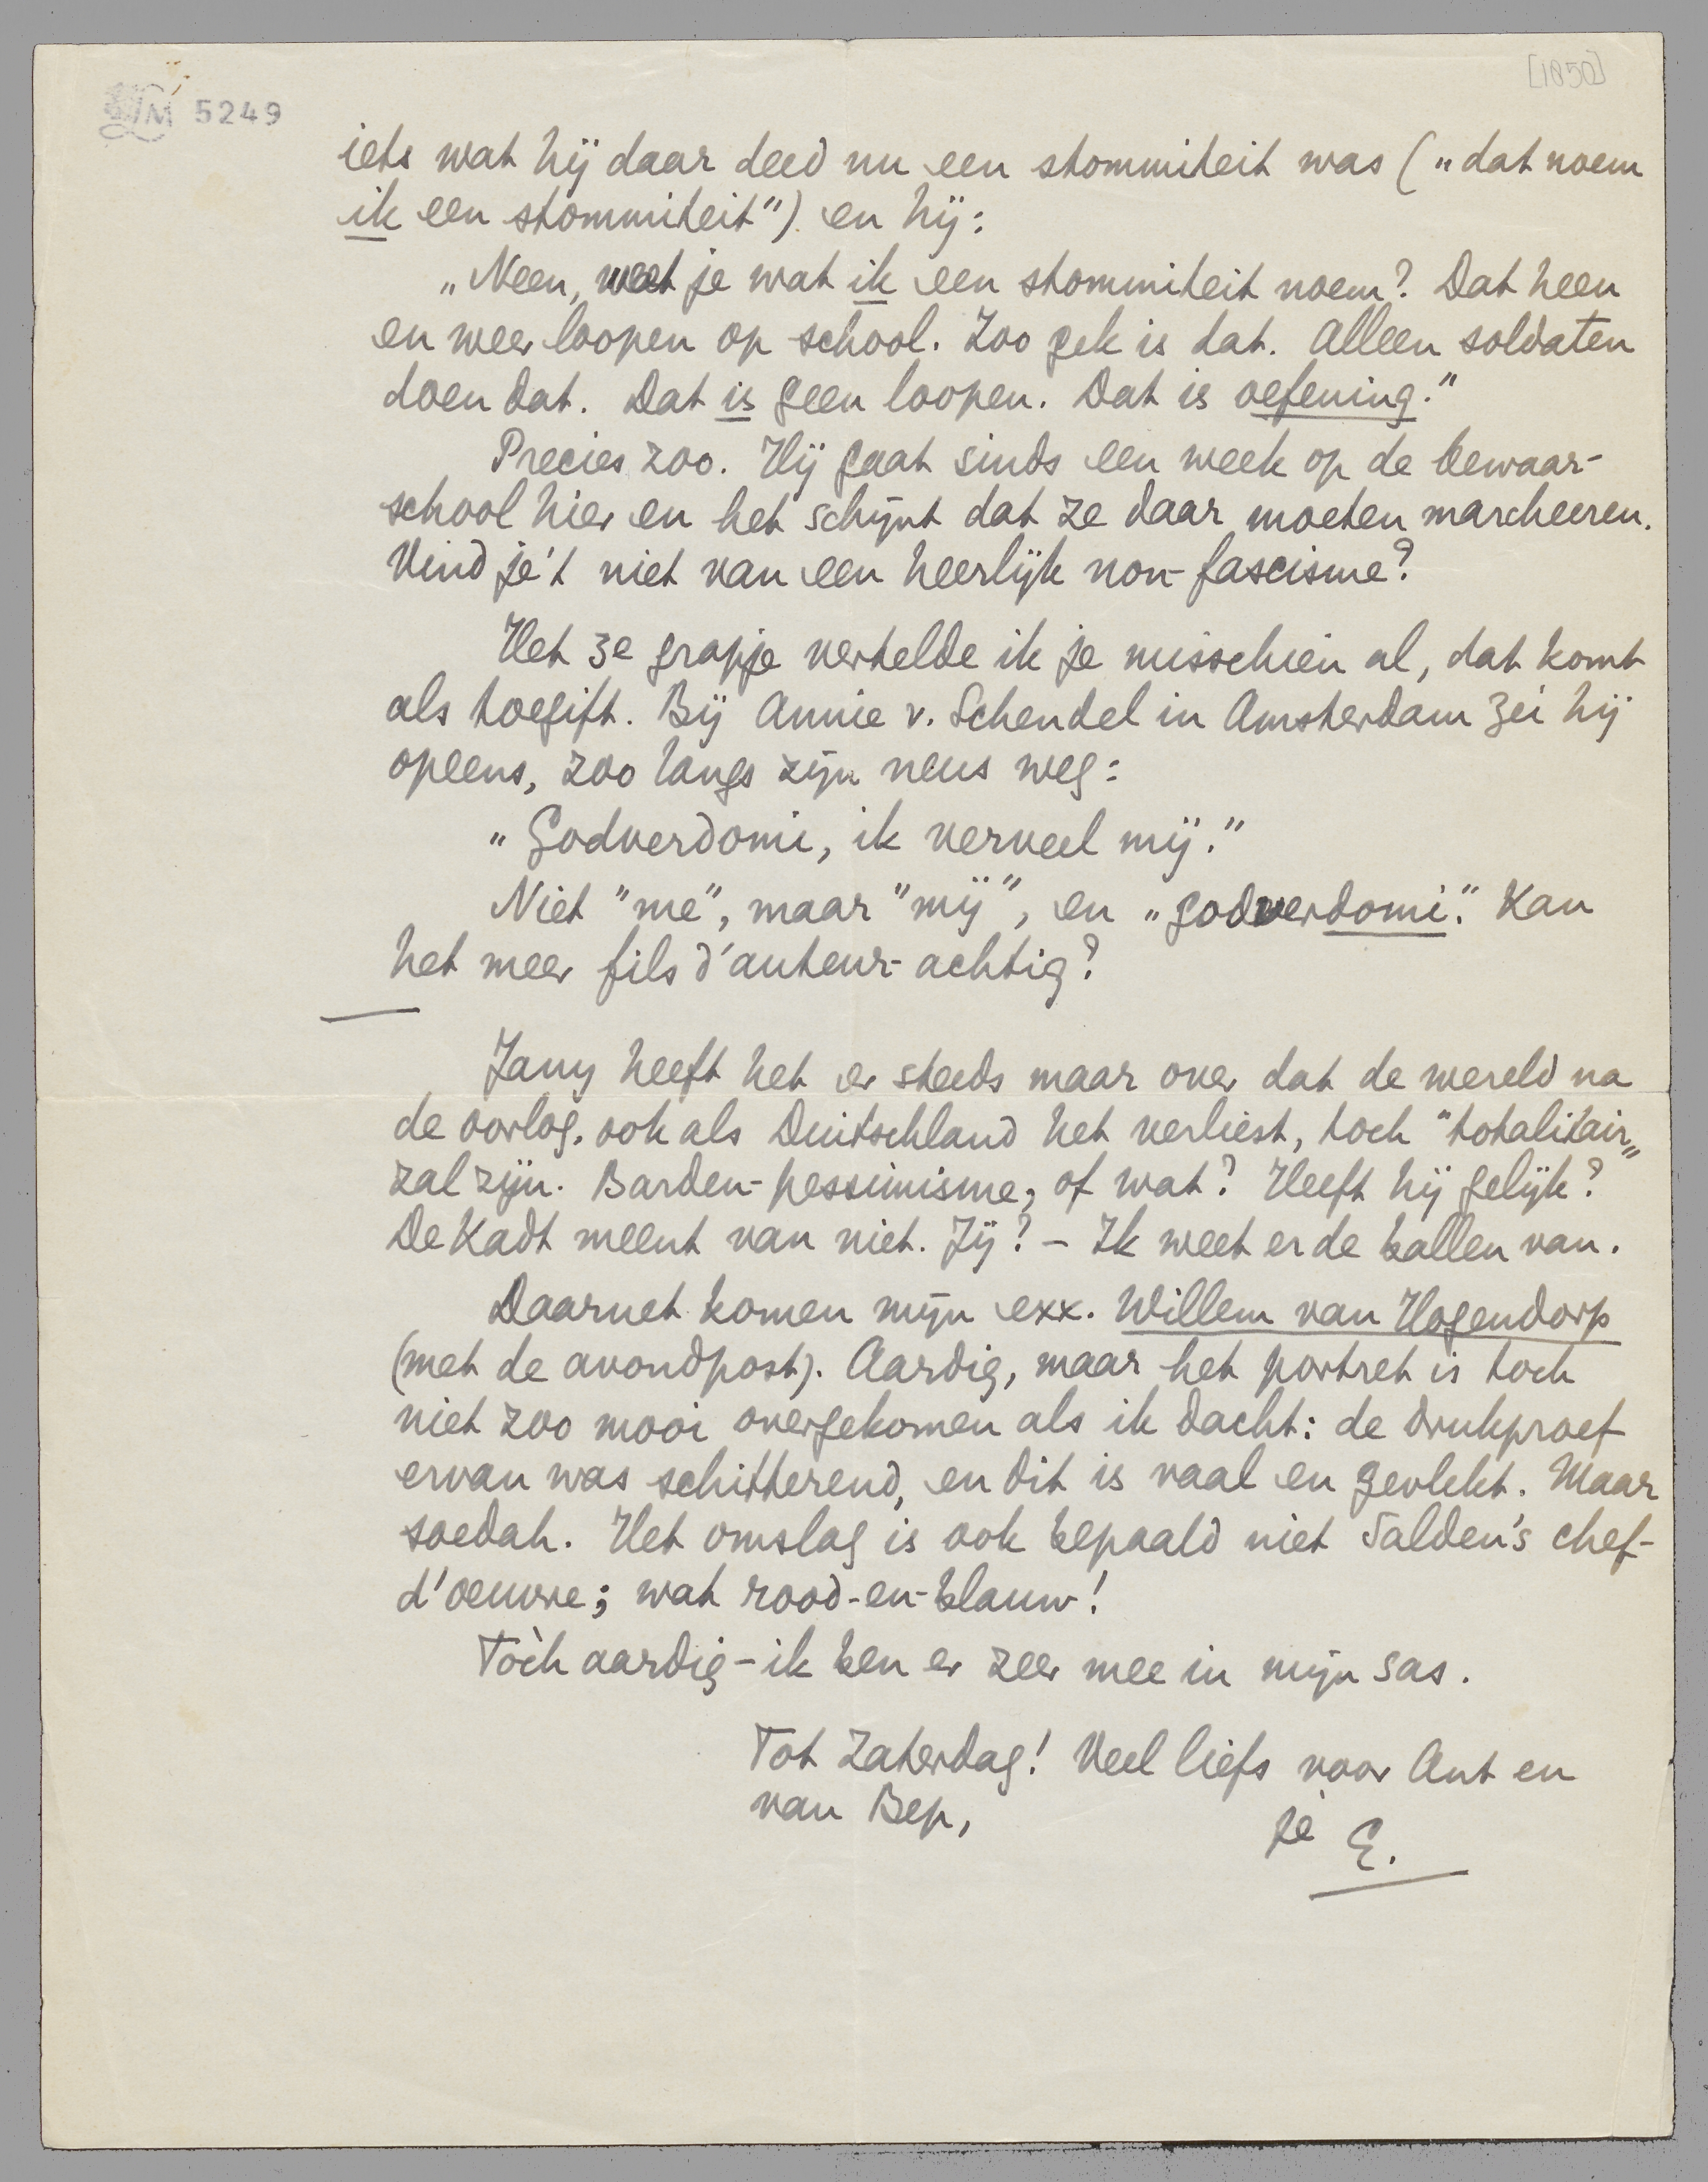 [1850]
LM 5249
iets wat hij daar deed nu een stommiteit was („dat noem
ik een stommiteit”) en hij:
„Neen, weet je wat ik een stommiteit noem? Dat heen
en weer loopen op school. Zoo gek is dat. Alleen soldaten
doen dat. Dat is geen loopen. Dat is oefening.”
Precies zoo. Hij gaat sinds een week op de bewaar-
school hier en het schijnt dat ze daar moeten marcheeren.
Vind je 't niet van een heerlijk non-fascisme?
Het 3e grapje vertelde ik je misschien al, dat komt
als toegift. Bij Annie v. Schendel in Amsterdam zei hij
opeens, zoo langs zijn neus weg:
„Godverdomi, ik verveel mij.”
Niet "me", maar "mij", en „godverdomi”. Kan
het meer fils d'auteur-achtig?
Jany heeft het er steeds maar over dat de wereld na
de oorlog, ook als Duitschland het verliest, toch "totalitair„
zal zijn. Barden-pessimisme, of wat? Heeft hij gelijk?
De Kadt meent van niet. Jij? – Ik weet er de ballen van.
Daarnet komen mijn exx. Willem van Hogendorp
(met de avondpost). Aardig, maar het portret is toch
niet zoo mooi overgekomen als ik dacht: de drukproef
ervan was schitterend, en dit is vaal en gevlekt. Maar
soedah. Het omslag is ook bepaald niet Salden's chef-
d'oeuvre; wat rood-en-blauw!
Tòch aardig – ik ben er zeer mee in mijn sas.
Tot Zaterdag! Veel liefs voor Ant en
van Bep,
je E.